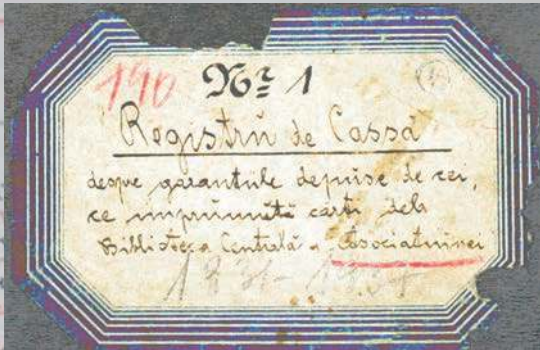 190 Nr 1
Registru de Cassă
despre garantiile depuse de cei,
ce imprumută cărti dela
Biblioteca Centrală a Asociatiunei